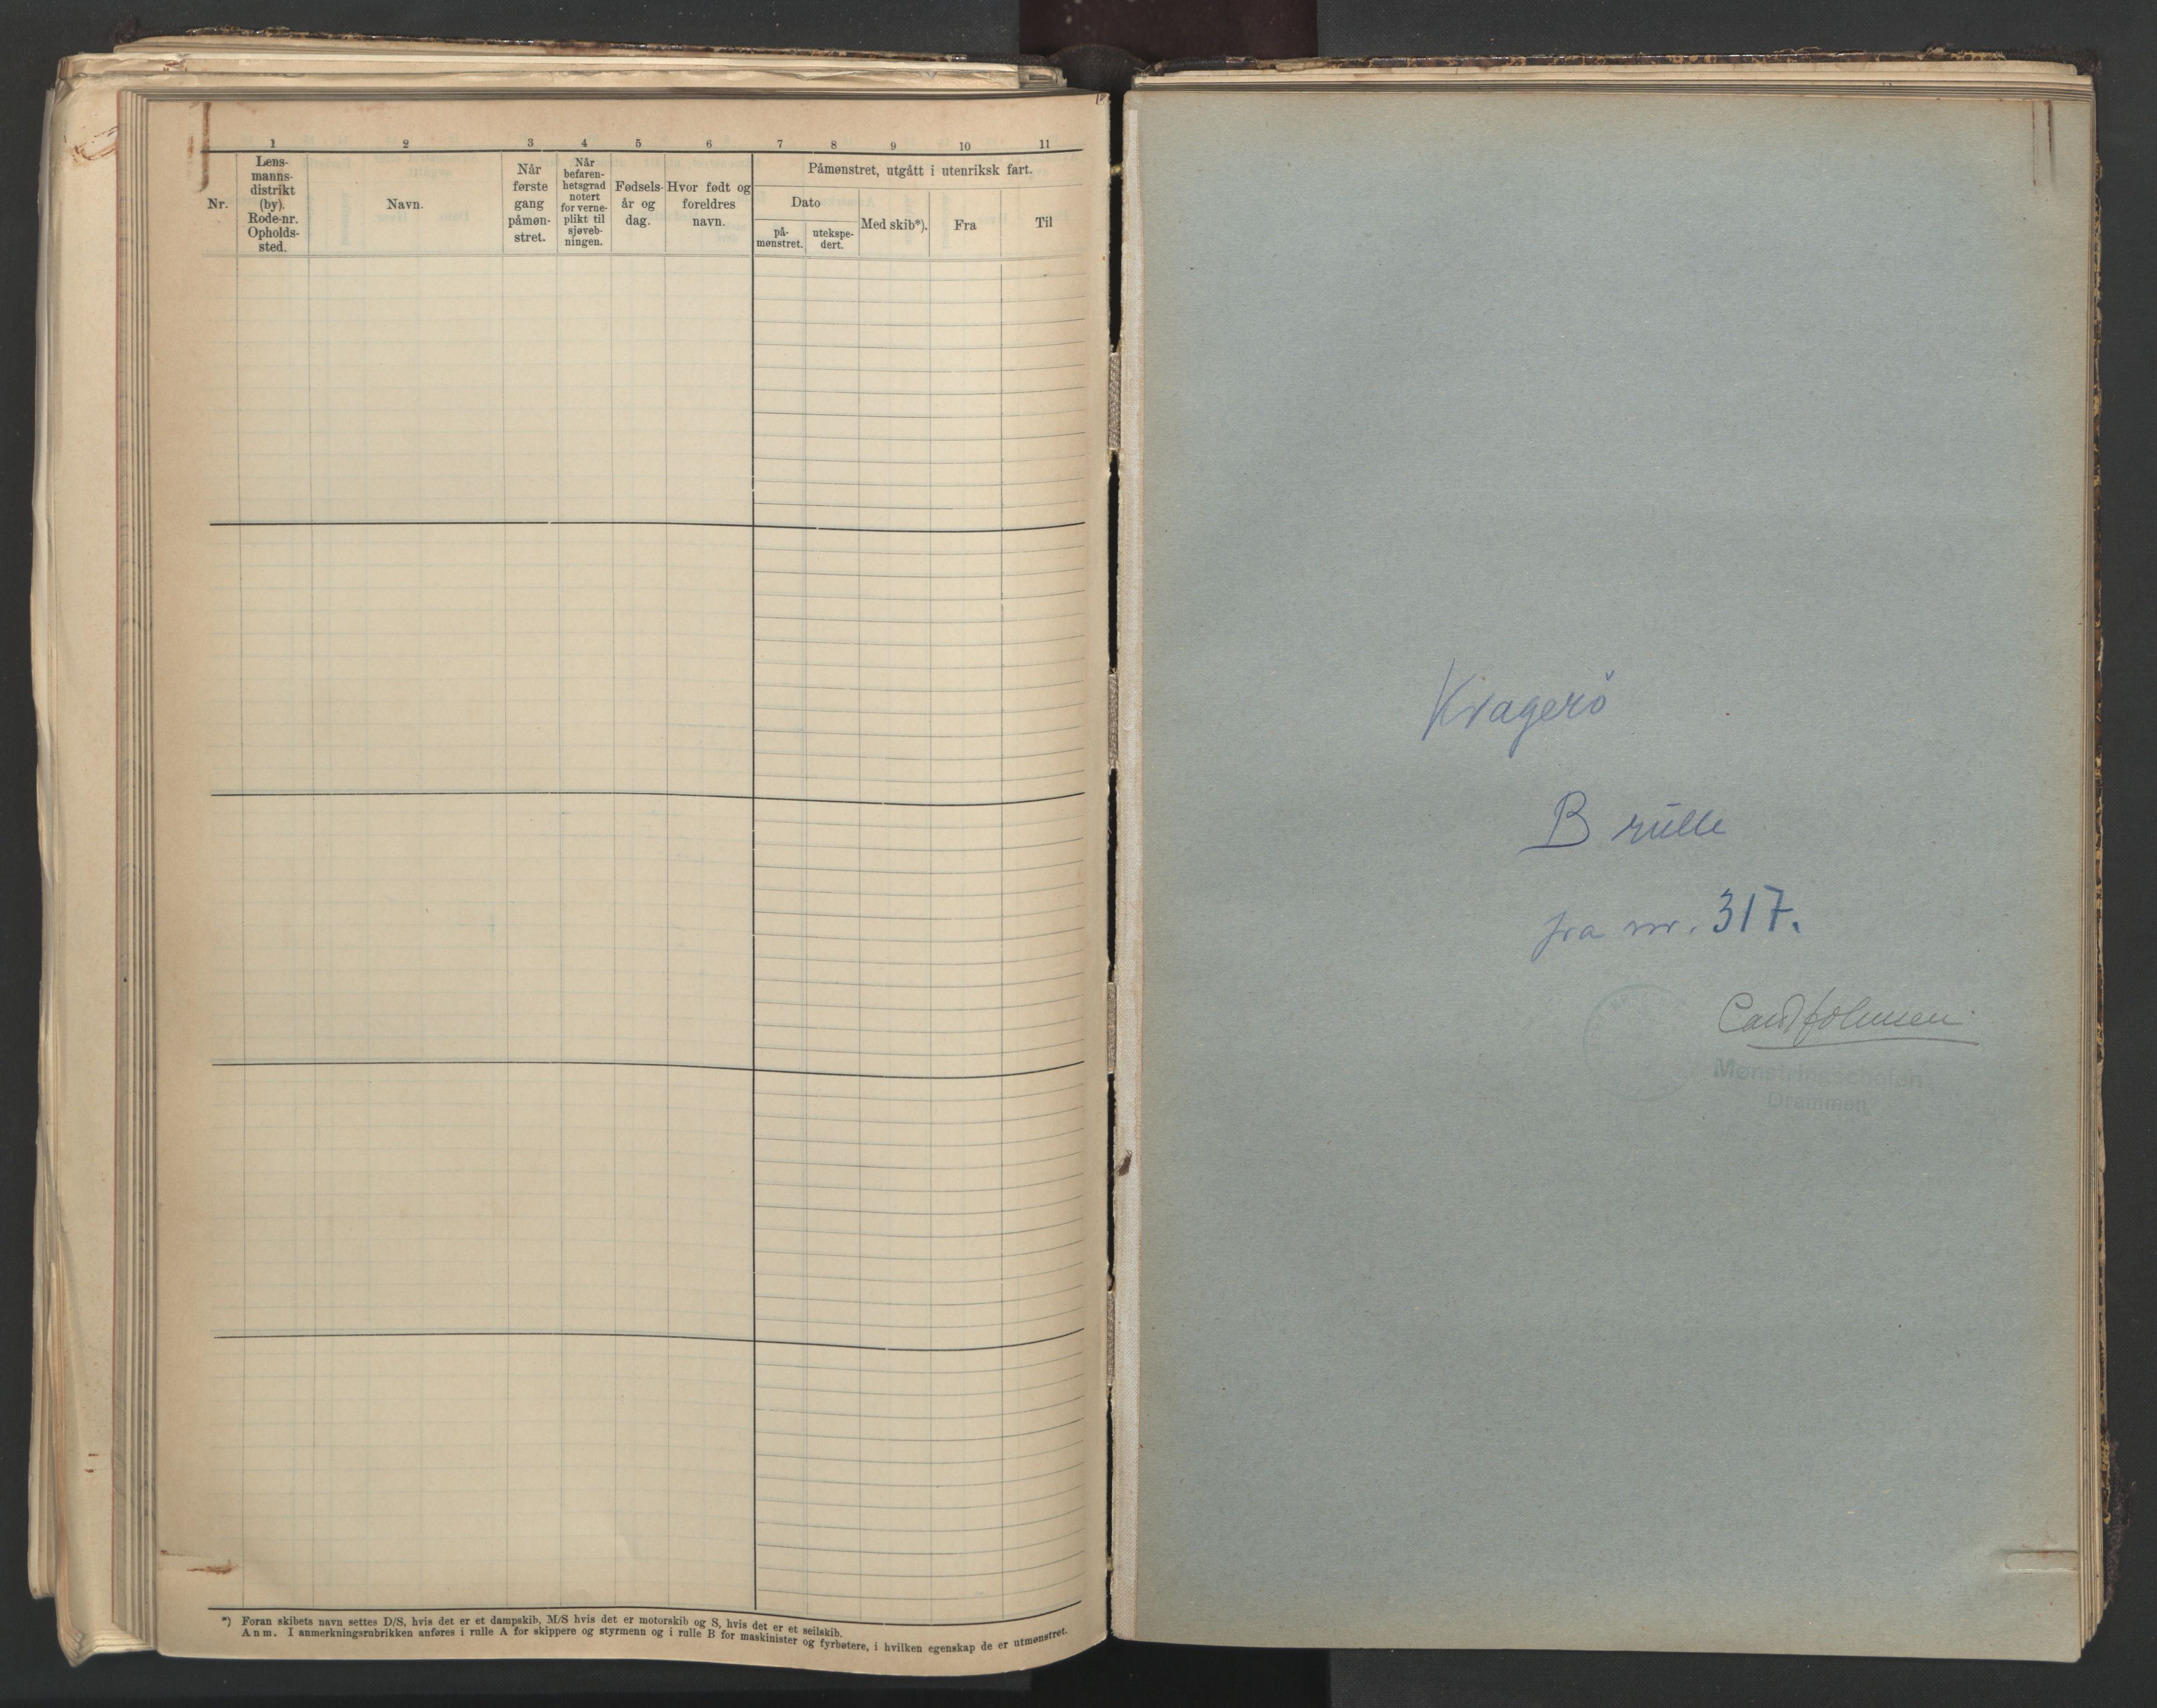 1 2 3 4 5 6 7 8 9 10 11
Nr.
Lens-
manns-
distrikt
(by).
Rode-nr.
Opholds-
sted.
Navn.
Når
første
gang
påmøn-
stret.
Når
befaren-
hetsgrad
notert
for verne-
plikt til
sjøveb-
ningen.
Fødsels-
år og
dag.
Hvor født og
foreldres
navn.
Påmønstret, utgått i utenriksk fart.
Dato
på-
mønstret.
utekspe-
dert.
Med skib*).
Fra
Til
*) Foran skibets navn settes D/S, hvis det er et dampskib, M/S hvis det er motorskib og S, hvis det er et seilskib.
Anm. I anmerkningsrubrikken anføres i rulle A for skippere og styrmenn og i rulle B for maskinister og fyrbøtere, i hvilken egenskap de er utmønstret.
Kragerö
B rulle
fra nr. 317.
Mønstringschefen
Drammen